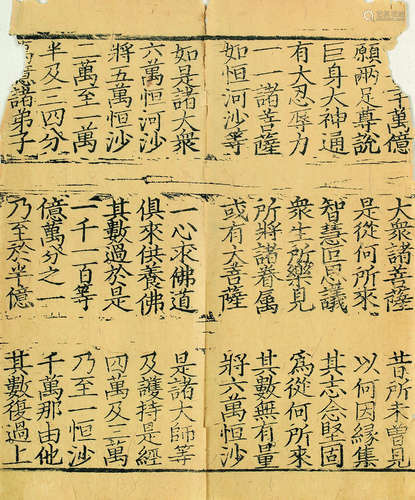 千萬億 大衆諸菩薩 昔所未曾見
願兩足尊說 是從何所來 以何因緣集
巨身大神通 智慧叵思議 其志念堅固
有大忍辱力 衆生所樂見 爲從何所來
一一諸菩薩 所將諸眷屬 其數無有量
如恒河沙等 或有大菩薩 將六萬恒沙
如是諸大衆 一心求佛道 是諸大師等
六萬恒河沙 俱來供養佛 及護持是經
將五萬恒沙 其數過於是 四萬及三萬
二萬至一萬 一千一百等 乃至一恒沙
半及三四分 億萬分之一 千萬那由他
萬億諸弟子 乃至於半億 其數復過上